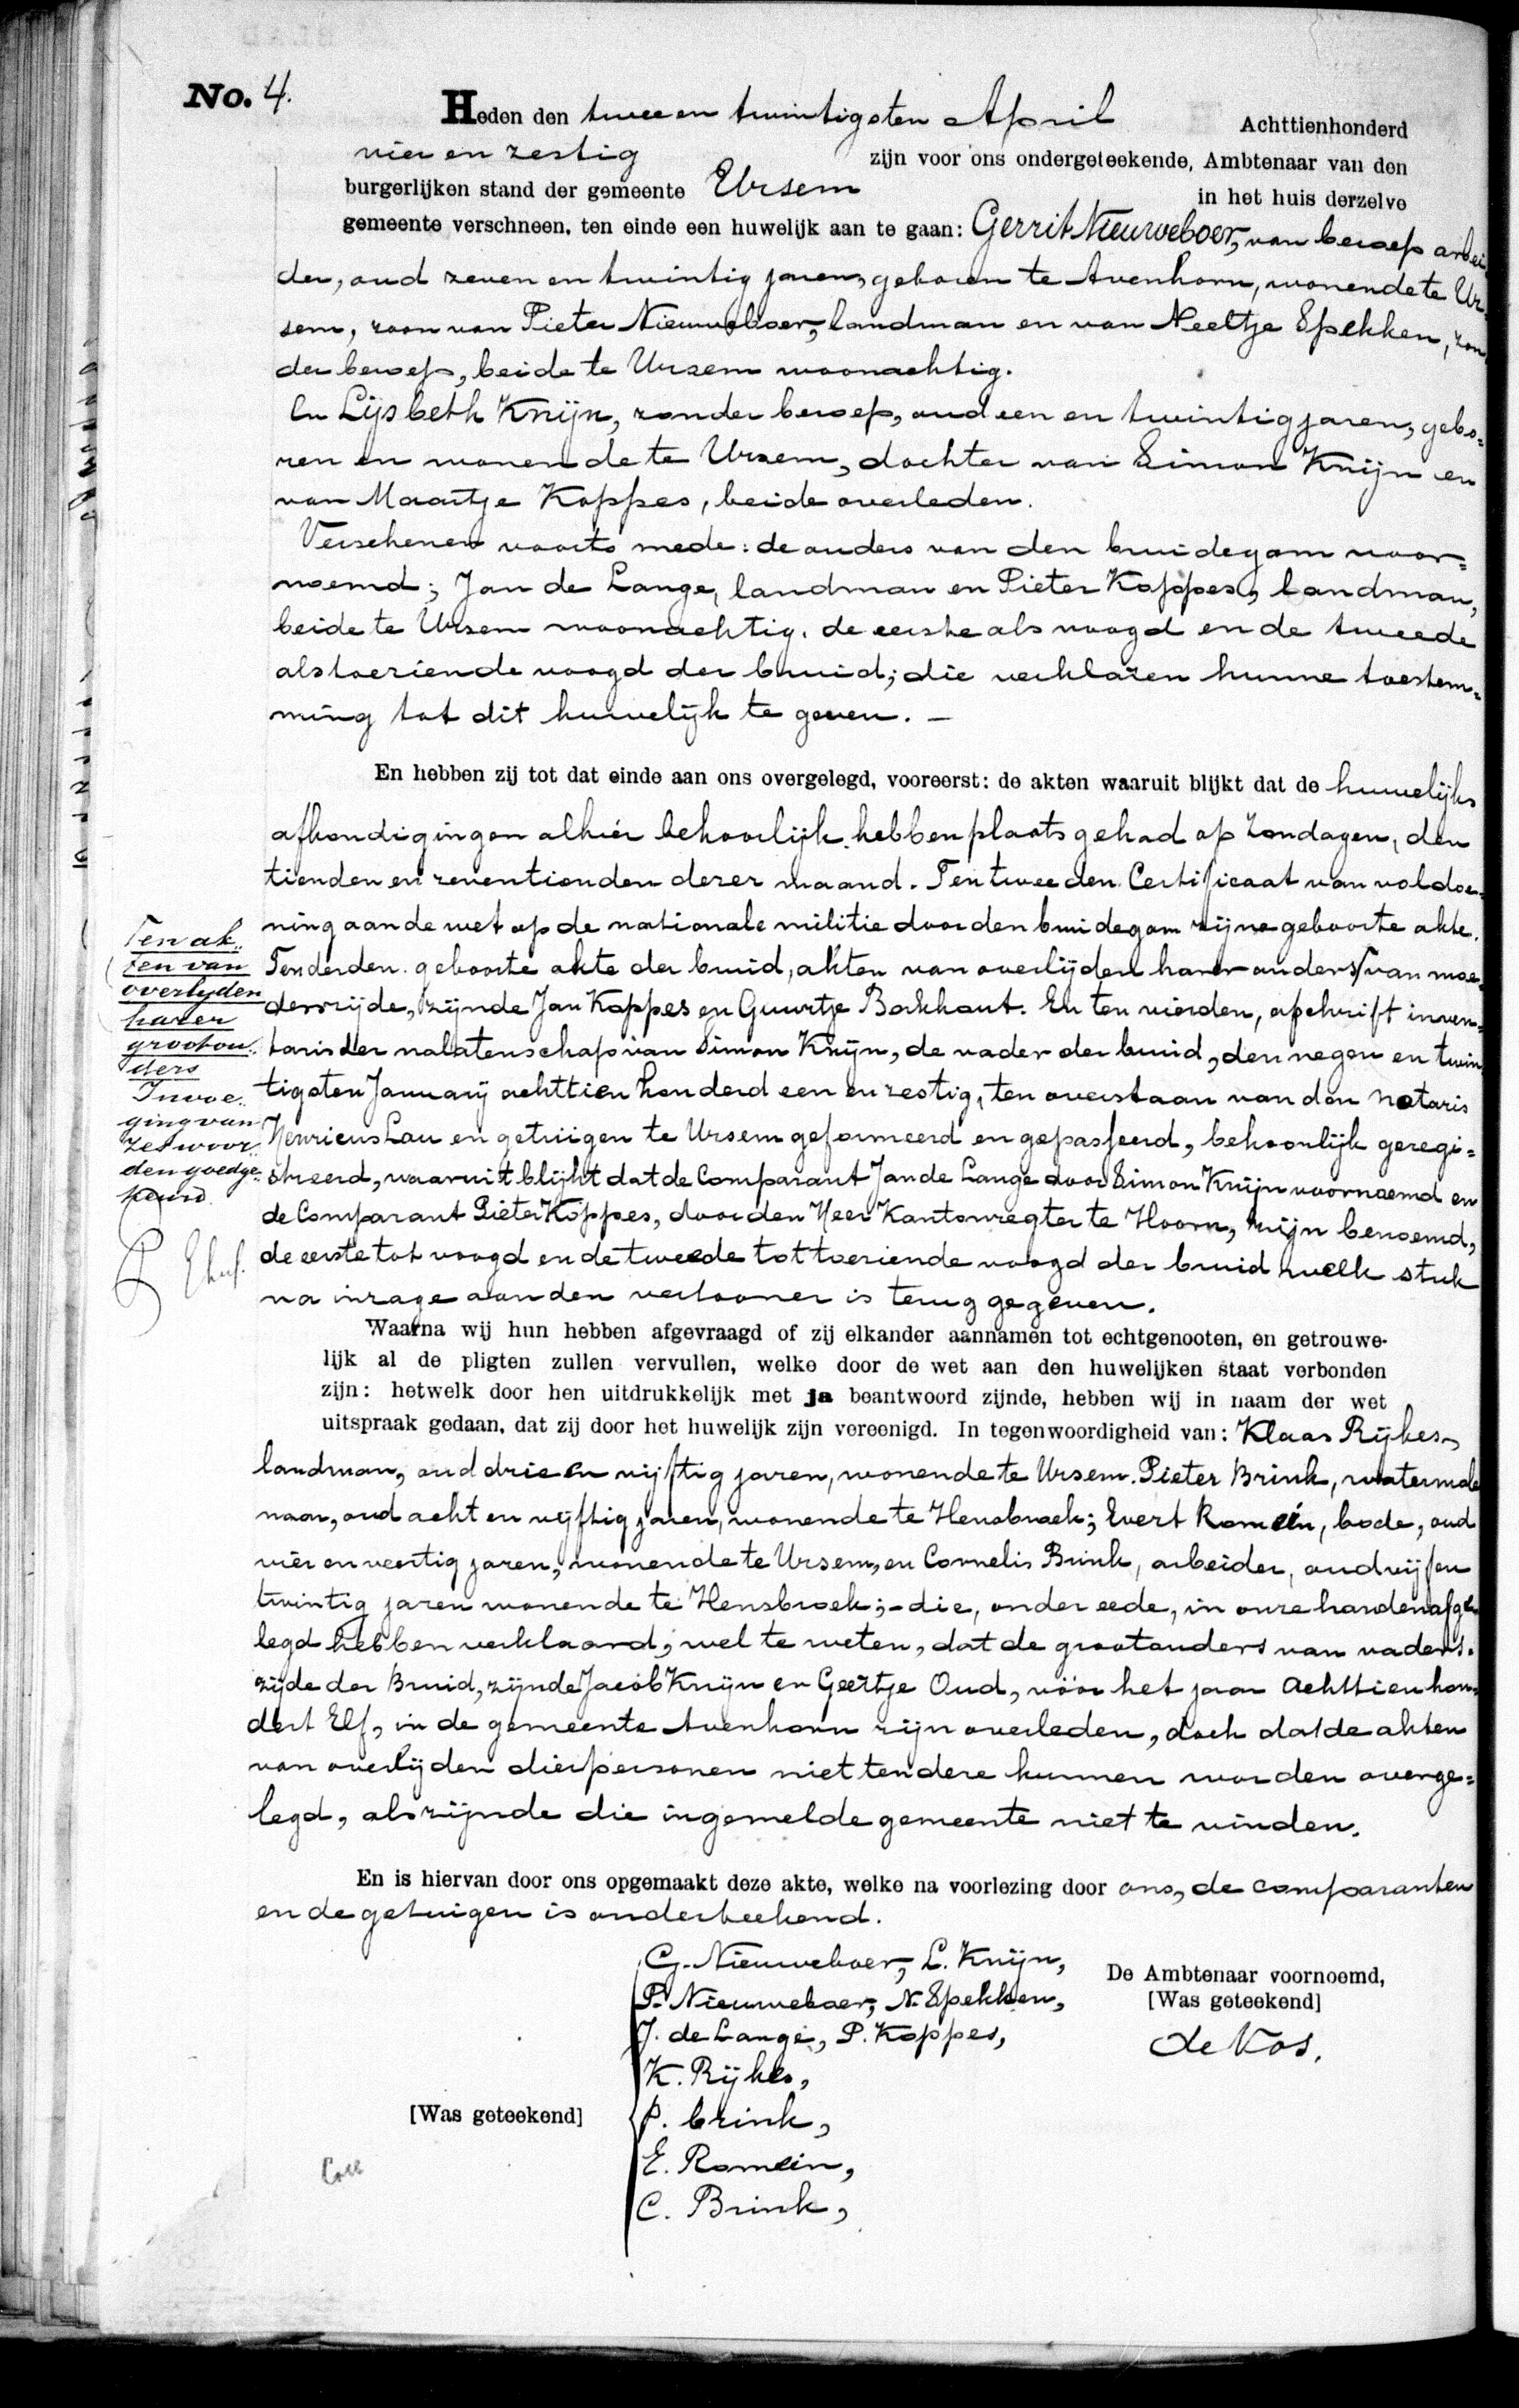 No. 4.
Heden den twee en twintigsten April Achttienhonderd
vier en zestig zijn voor ons ondergeteekende, Ambtenaar van den
burgerlijken stand der gemeente Ursem in het huis derzelve
gemeente verschneen, ten einde een huwelijk aan te gaan: Gerrit Nieuweboer, van beroep arbei
der, oud zeven en twintig jaren, geboren te Avenhorn, wonende te Ur-
sem, zoon van Pieter Nieuweboer, landman en van Neeltje Spekken, zon
der beroep, beide te Ursem woonachtig.
En Lijsbeth Knijn, zonder beroep, oud een en twintig jaren, gebo=
ren en wonende te Ursem, dochter van Simon Knijn en
van Maartje Koppes, beide overleden.
Verschenen voorts mede: de ouders van den bruidegom voor=
noemd; Jan de Lange, landman en Pieter Koppes, landman,
beide te Ursem woonachtig, de eerste als voogd en de tweede
als toeziende voogd der bruid; die verklaren hunne toestem=
ming tot dit huwelijk te geven. —
En hebben zij tot dat einde aan ons overgelegd, vooreerst: de akten waaruit blijkt dat de huwelijks
afkondigingen alhier behoorlijk hebben plaats gehad op Zondagen, den
tienden en zeventienden dezer maand. Ten tweeden Certificaat van voldoe=
ning aan de wet op de nationale militie door den bruidegom zijne geboorte akte.
Ten derden geboorte akte der bruid, akten van overlijden harer ouders van moe=
derszijde, zijnde Jan Koppes en Guurtje Bockhout. En ten vierden, afschrift inven=
taris der nalatenschap van Simon Knijn, de vader der bruid, den negen en twin
tigsten Januarij achttien honderd een en zestig, ten overstaan van den Notaris
Henricus Lau en getuigen te Ursem geformeerd en gepasseerd, behoorlijk geregi=
streerd, waaruit blijkt dat de Comparant Jan de Lange door Simon Knijn voornoemd en
de Comparant Pieter Koppes, door den Heer Kantonregter te Hoorn, zijn benoemd,
de eerste tot voogd en de tweede tot toeziende voogd der bruid welk stuk
na inzage aan den vertooner is terug gegeven.
Ten ak=
ten van
overlyden
harer
grootou=
ders
Invoe=
ging van
zes woor=
den goedge=
keurd.
Waarna wij hun hebben afgevraagd of zij elkander aannamen tot echtgenooten, en getrouwe-
lijk al de pligten zullen vervullen, welke door de wet aan den huwelijken staat verbonden
zijn: hetwelk door hen uitdrukkelijk met ja beantwoord zijnde, hebben wij in naam der wet
uitspraak gedaan, dat zij door het huwelijk zijn vereenigd. In tegenwoordigheid van: Klaas Rijkes,
landman, oud drie en vijftig jaren, wonende te Ursem. Pieter Brink, watermole
naar, oud acht en vijftig jaren, wonende te Hensbroek; Evert Romein, bode, oud
vier en veertig jaren, wonende te Ursem, en Cornelis Brink, arbeider, oud vijf en
twintig jaren wonende te Hensbroek; - die, onder eede, in onze handen afge
legd hebben verklaard, wel te weten, dat de grootouders van vaders=
zijde der Bruid, zijnde Jacob Knijn en Geertje Oud, vóór het jaar Achttien hon=
dert Elf, in de gemeente Avenhorn zijn overleden, doch dat de akten
van overlijden dier personen niet ten dere kunnen worden overge=
legd, als zijnde die in gemelde gemeente niet te vinden.
En is hiervan door ons opgemaakt deze akte, welke na voorlezing door ons, de comparanten
en de getuigen is onderteekend.
G. Nieuweboer, L. Knijn,
P. Nieuweboer, N. Spekken,
J. de Lange, P. Koppes,
K. Rijkes,
[Was geteekend] P. brink,
E. Romein,
C. Brink,
De Ambtenaar voornoemd,
[Was geteekend]
de Vos.